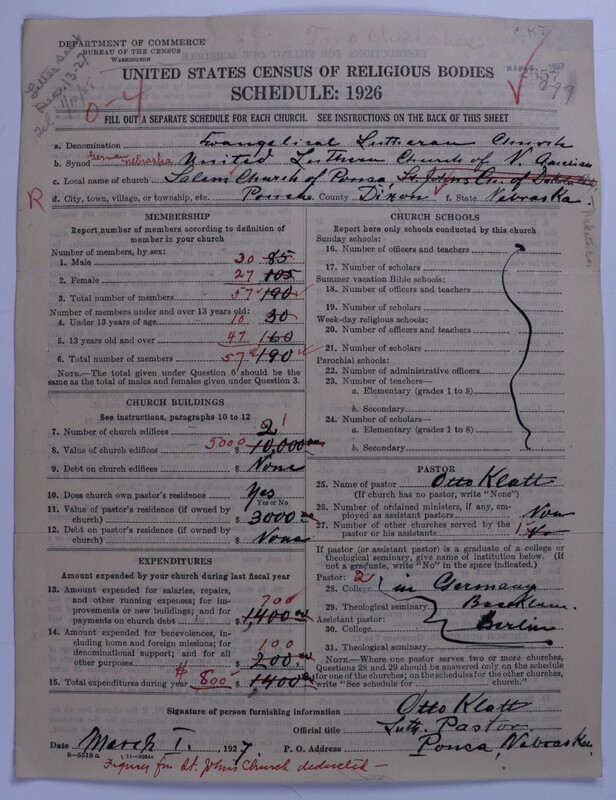 DEPARTMENT OF COMMERCE
BUREAU OF THE CENSUS
WASHINGTON
UNITED STATES CENSUS OF RELIGIOUS BODIES
SCHEDULE: 1926
0-4
FILL OUT A SEPARATE SCHEDULE FOR EACH CHURCH. SEE INSTRUCTIONS ON THE BACK OF THIS SHEET
a. Denomination Evangelical Lutheran Church
b. Synod German Nebraska United Luthern Church of N. America
c. Local name of church Salem Church of Ponca St. Johns Ch. of Dakota
R
d. City, town, village, or township, etc. Ponca e. County Dixon f. State Nebraska.
MEMBERSHIP
Report number of members according to definition of member in your church
Number of members, by sex:
1. Male 30 85
2. Female 27 105
3. Total number of members 57 190
Number of members under and over 13 years old:
4. Under 13 years of age 10 30
5. 13 years old and over 47 160
6. Total number of members 57 190
NOTE.—The total given under Question 6 should be the same as the total of males and females given under Question 3.
CHURCH BUILDINGS
See instructions, paragraphs 10 to 12
7. Number of church edifices 2 1
8. Value of church edifices 5000 $ 10,000
9. Debt on church edifices $ None
10. Does church own pastor's residence Yes
Yes or No
11. Value of pastor's residence (if owned by church) $ 3000
12. Debt on pastor's residence (if owned by church) $ None
EXPENDITURES
Amount expended by your church during last fiscal year
13. Amount expended for salaries, repairs, and other running expenses; for improvements or new buildings; and for payments on church debt 700 $ 1,400
14. Amount expended for benevolences, including home and foreign missions; for denominational support; and for all other purposes 100 $ 200.
15. Total expenditures during year $ 800 $ 1400
CHURCH SCHOOLS
Report here only schools conducted by this church
Sunday schools:
16. Number of officers and teachers
17. Number of scholars
Summer vacation Bible schools:
18. Number of officers and teachers
19. Number of scholars
Week-day religious schools:
20. Number of officers and teachers
21. Number of scholars
Parochial schools:
22. Number of administrative officers
23. Number of teachers—
a. Elementary (grades 1 to 8)
b. Secondary
24. Number of scholars—
a. Elementary (grades 1 to 8)
b. Secondary
PASTOR
25. Name of pastor Otto Klatt
(If church has no pastor, write "None")
26. Number of ordained ministers, if any, employed as assistant pastors Non
27. Number of other churches served by the pastor or his assistants 1
If pastor (or assistant pastor) is a graduate of a college or theological seminary, give name of institution below. (If not a graduate, write "No" in the space indicated.)
Pastor: 2
28. College in Germany
29. Theological seminary
Assistant pastor:
30. College Berlin
31. Theological seminary
NOTE.—Where one pastor serves two or more churches, Questions 28 and 29 should be answered only on the schedule for one of the churches; on the schedules for the other churches, write "See schedule for church."
Signature of person furnishing information Otto Klatt
Official title Luth. Pastor
Date March 1. 1927. P. O. Address Ponca, Nebraska
8—5518 a
11—9084
Figures for St. Johns Church deducted —